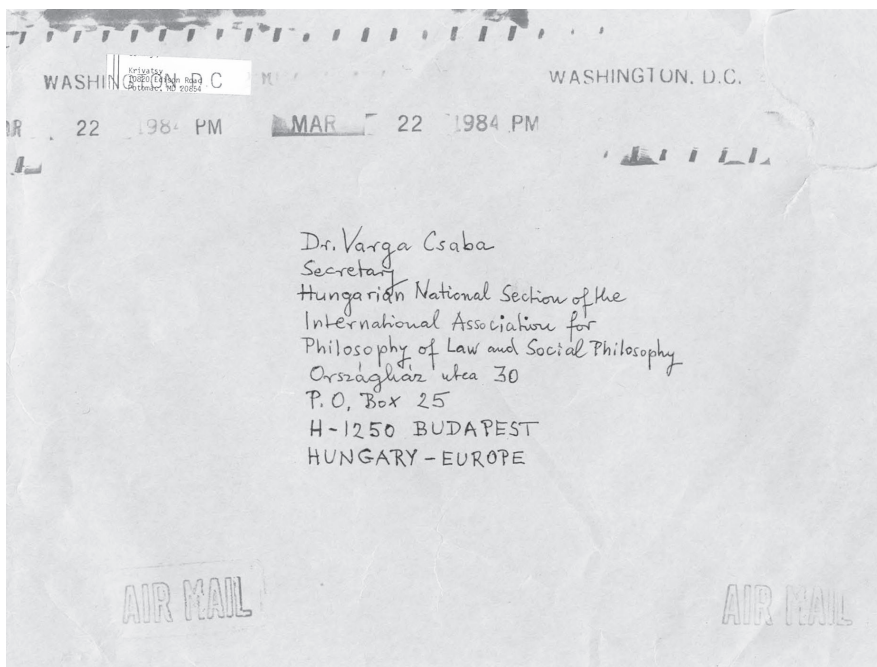 Krivatsy
10820 Edison Road
Potomac, MD 20854
WASHINGTON, D.C
WASHINGTON, D.C.
22 198 PM
MAR 22 1984 PM
Dr. Varga Csaba
Secretary
Hungarian National Section of the
International Association for
Philosophy of Law and Social Philosophy
Országház utca 30
P.O. Box 25
H-1250 BUDAPEST
HUNGARY - EUROPE
AIR MAIL
AIR MAIL